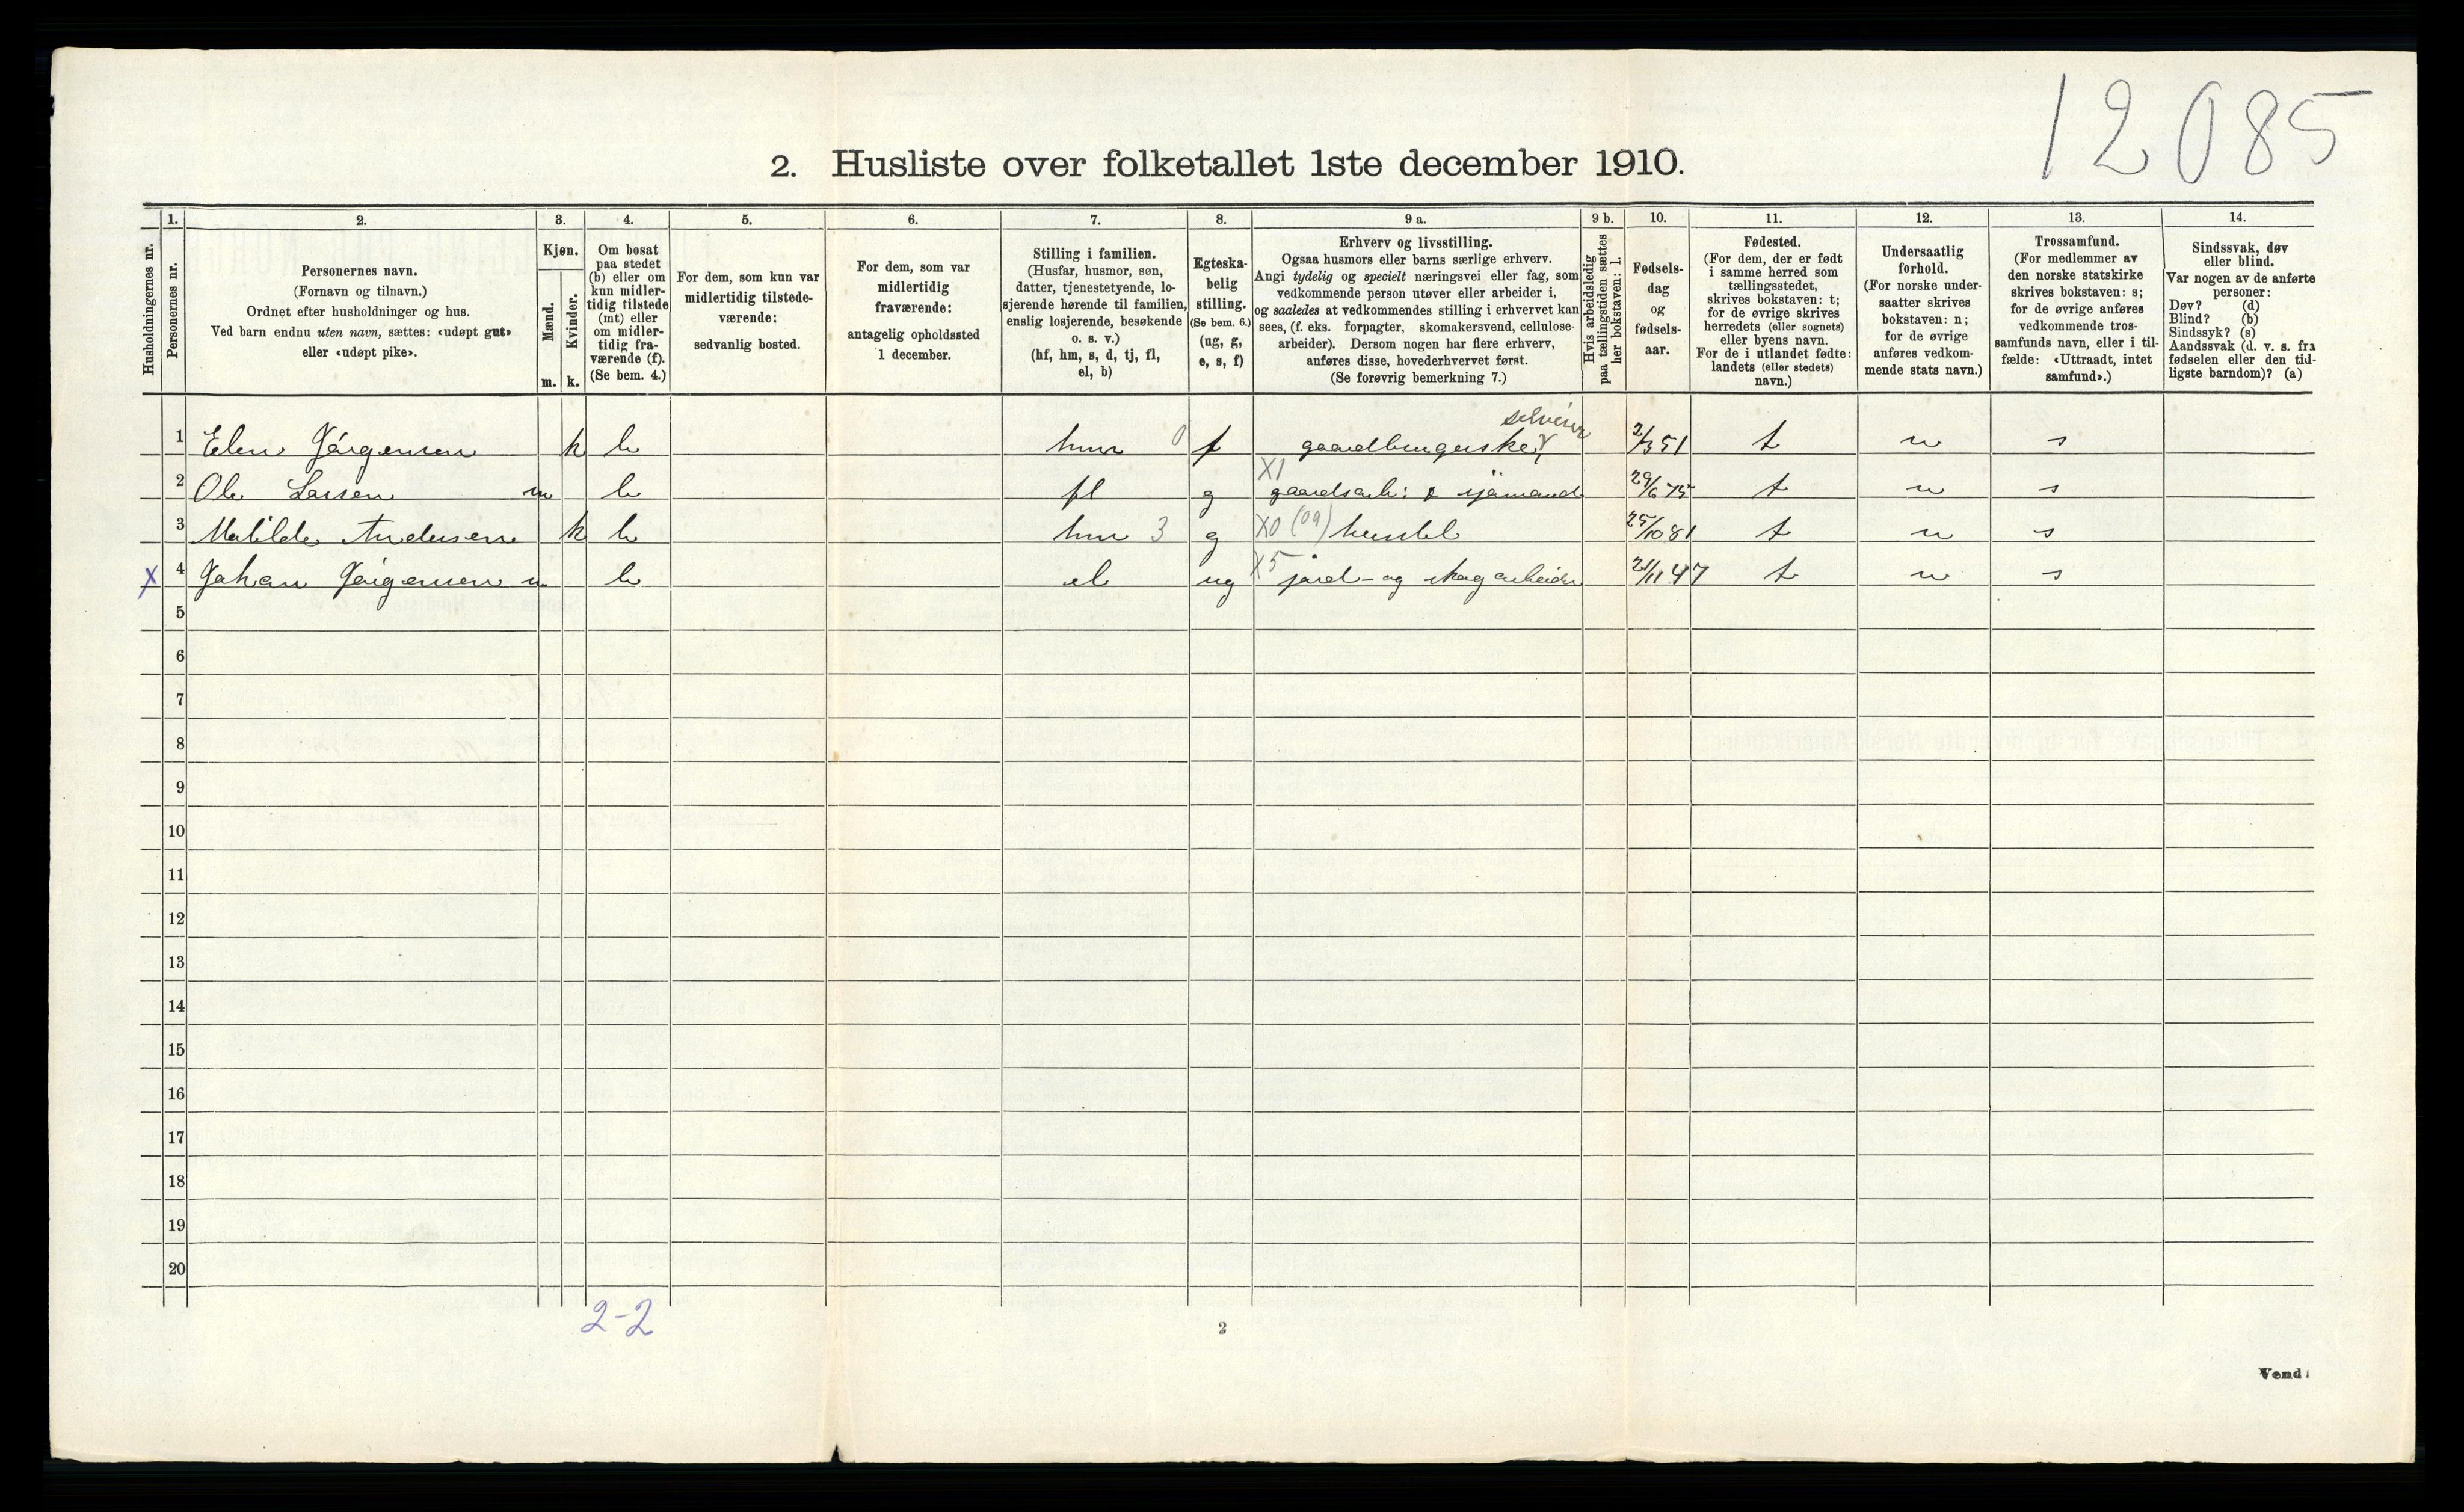 12085
2. Husliste over folketallet 1ste december 1910.
Husholdningernes nr.
1.
Personernes nr.
2.
Personernes navn.
(Fornavn og tilnavn.)
Ordnet efter husholdninger og hus.
Ved barn endnu uten navn, sættes: «udøpt gut»
eller «udøpt pike».
3.
Kjøn.
Mænd.
Kvinder.
m. k.
4.
Om bosat
paa stedet
(b) eller om
kun midler-
tidig tilstede
(mt) eller
om midler-
tidig fra-
værende (f).
(Se bem. 4.)
5.
For dem, som kun var
midlertidig tilstede-
værende:
sedvanlig bosted.
6.
For dem, som var
midlertidig
fraværende:
antagelig opholdssted
1 december.
7.
Stilling i familien.
(Husfar, husmor, søn,
datter, tjenestetyende, lo-
sjerende hørende til familien,
enslig losjerende, besøkende
o. s. v.)
(hf, hm, s, d, tj, fl,
el, b)
8.
Egteska-
belig
stilling.
(Se bem. 6.)
(ug, g,
e, s, f)
9 a.
Erhverv og livsstilling.
Ogsaa husmors eller barns særlige erhverv.
Angi tydelig og specielt næringsvei eller fag, som
vedkommende person utøver eller arbeider i,
og saaledes at vedkommendes stilling i erhvervet kan
sees, (f. eks. forpagter, skomakersvend, cellulose-
arbeider). Dersom nogen har flere erhverv,
anføres disse, hovederhvervet først.
(Se forøvrig bemerkning 7.)
9 b.
Hvis arbeidsledig
paa tællingstiden sættes
her bokstaven: l.
10.
Fødsels-
dag
og
fødsels-
aar.
11.
Fødested.
(For dem, der er født
i samme herred som
tællingsstedet,
skrives bokstaven: t;
for de øvrige skrives
herredets (eller sognets)
eller byens navn.
For de i utlandet fødte:
landets (eller stedets)
navn.)
12.
Undersaatlig
forhold.
(For norske under-
saatter skrives
bokstaven: n;
for de øvrige
anføres vedkom-
mende stats navn.)
13.
Trossamfund.
(For medlemmer av
den norske statskirke
skrives bokstaven: s;
for de øvrige anføres
vedkommende tros-
samfunds navn, eller i til-
fælde: «Uttraadt, intet
samfund».)
14.
Sindssvak, døv
eller blind.
Var nogen av de anførte
personer:
Døv? (d)
Blind? (b)
Sindssyk? (s)
Aandssvak (d. v. s. fra
fødselen eller den tid-
ligste barndom)? (a)
1 Elen Jørgensen k b hm 0 f gaardbrugerske selveier 2/3 51 t n s
2 Ole Larsen m b fl g X1 gaardsarb: & sjømand 29/6 75 t n s
3 Matilde Andersen k b hm 3 g X0 (09) husstel 25/10 81 t n s
X 4 Johan Jørgensen m b el ug X5 jord- og skogarbeider 21/11 47 t n s
5
6
7
8
9
10
11
12
13
14
15
16
17
18
19
20
2-2
2
Vend!